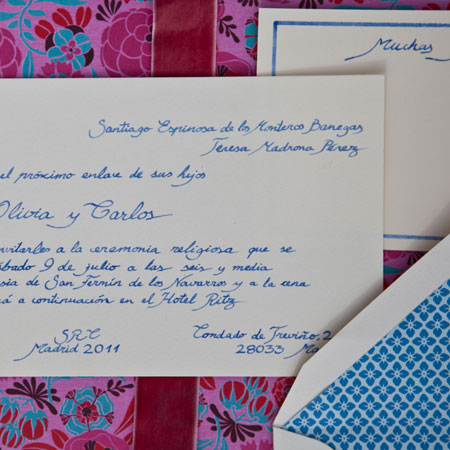 Santiago Espinosa de los Monteros Banegas
Teresa Madrona Pérez
el próximo enlace de sus hijos
Olivia y Carlos
invitarles a la ceremonia religiosa que se
sábado 9 de julio a las seis y media
esia de San Fermín de los Navarros y a la cena
rá a continuación en el Hotel Ritz
SRC
Madrid 2011
Condado de Treviño, 2
28033 Ma
Muchas